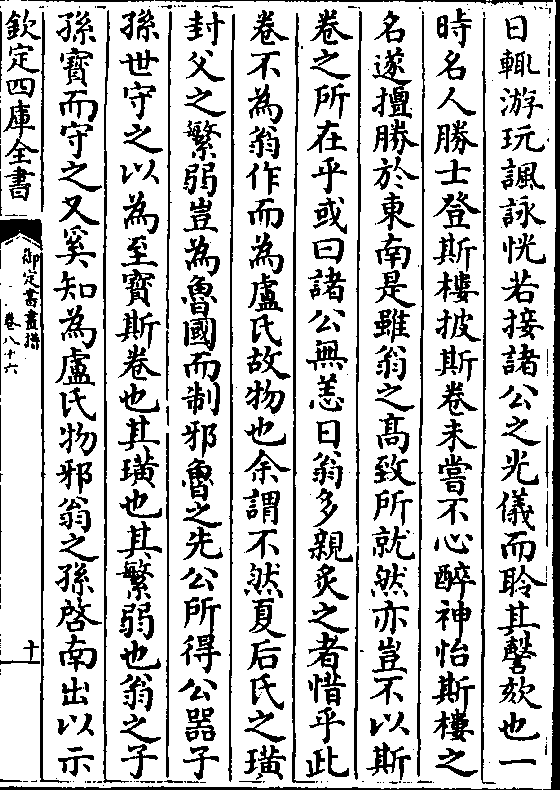 日輒游玩諷詠恍若接諸公之光儀而聆其謦欬也一
時名人勝士登斯樓披斯卷未嘗不心醉神怡斯樓之
名遂擅勝於東南是雖翁之髙致所就然亦豈不以斯
卷之所在乎或曰諸公無恙日翁多親炙之者惜乎此
卷不為翁作而為盧氏故物也余謂不然夏后氏之璜
封父之繁弱豈為魯國而制邪魯之先公所得公器子
孫世守之以為至寳斯卷也其璜也其繁弱也翁之子
孫寳而守之又奚知為盧氏物邪翁之孫啓南出以示
欽定四庫全書
御定書畫譜
卷八十六
十